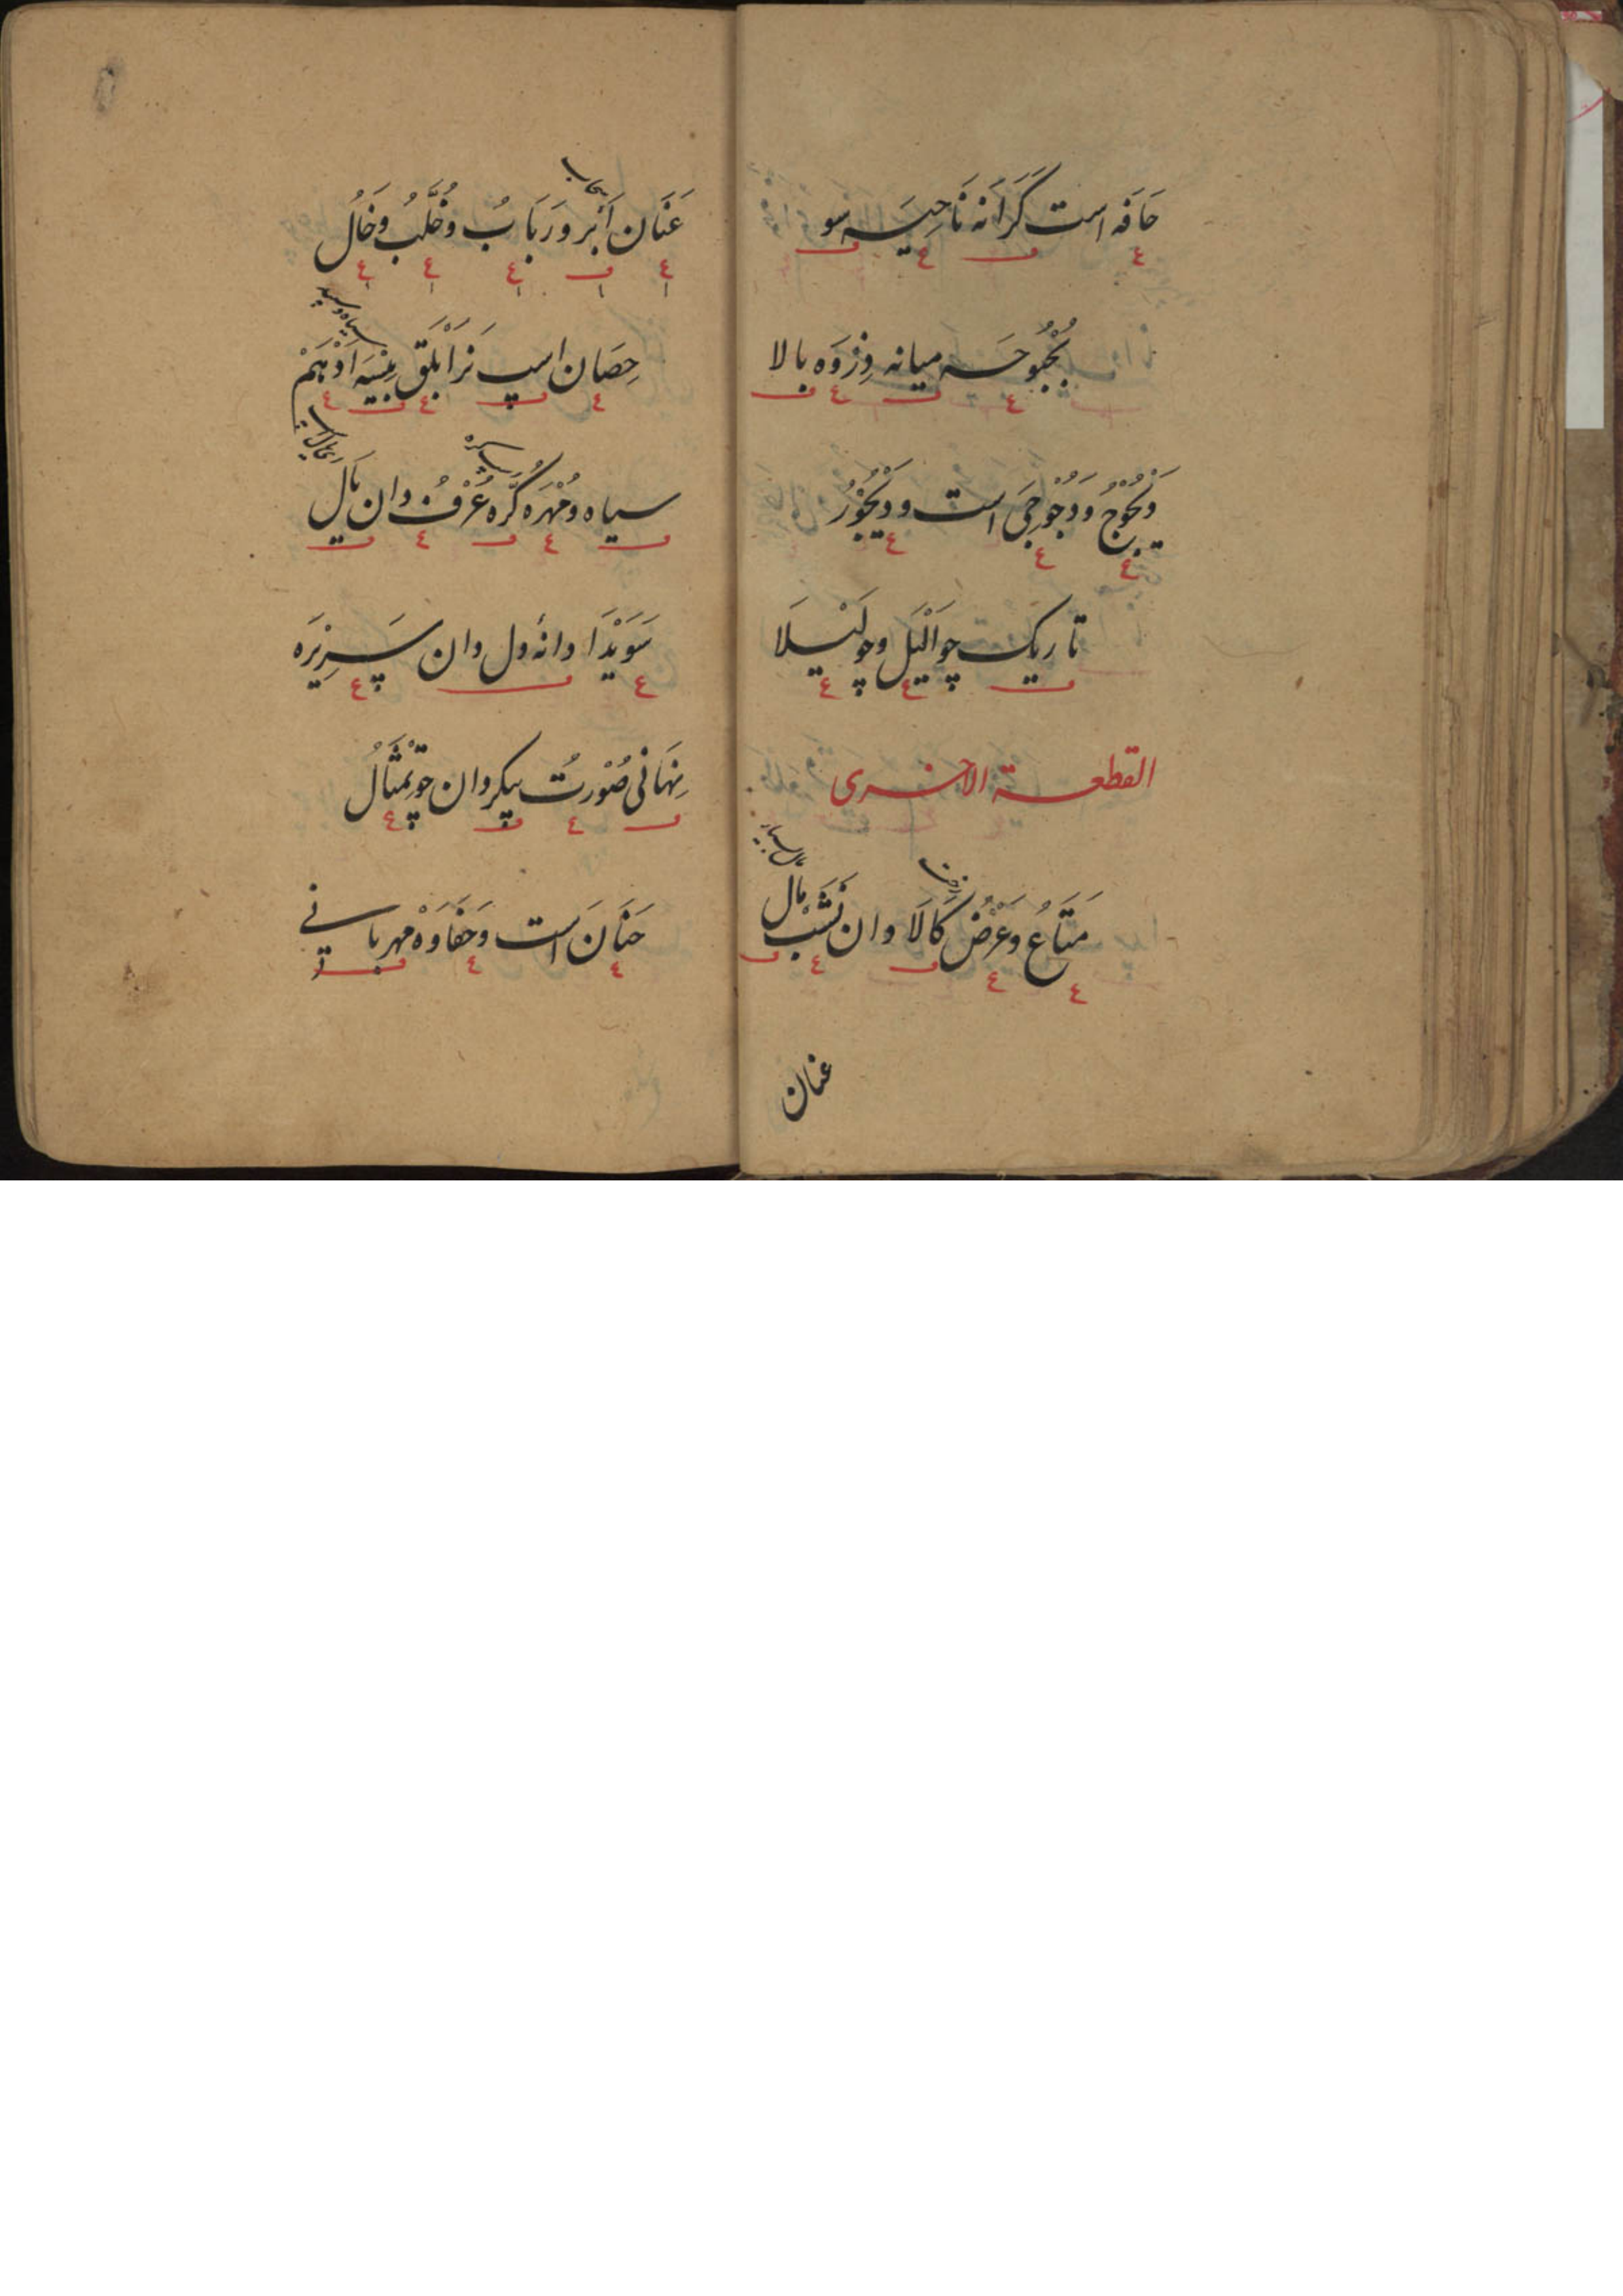 حَافَه است کَرَانَه نَاحِیَه سو
بُحْبُوحَه میانه وِزِرْوَه بالا
دَیْجُوجُ وَدُجُوجِیَ است وَدَیْجُوْرُ
تاریک چو اَلْیَل وچو لَیْلَا
القطعة الاخری
مَتَاعُ وَعَرْضُ کَالَا وان نَشَبْ مَال
عنان
عَنَان اَبْر وَرَبَابُ وخُلَّبُ وَخَالُ
سحاب
حِصَان اسپ نَر اَبْلَق پِیْسَه اَدْهَمْ
سیاه وسپید
سیاه ومُهْرَه کُرَّه عُرْفُ دان یَال
سُوَیْدَا دانهٔ دل دان سَرِیْرَه
نِهَانی صُوْرتُ پیکر دان چو تِمْثَالُ
حَنَان است وَحَفَاوَهْ مهربانی